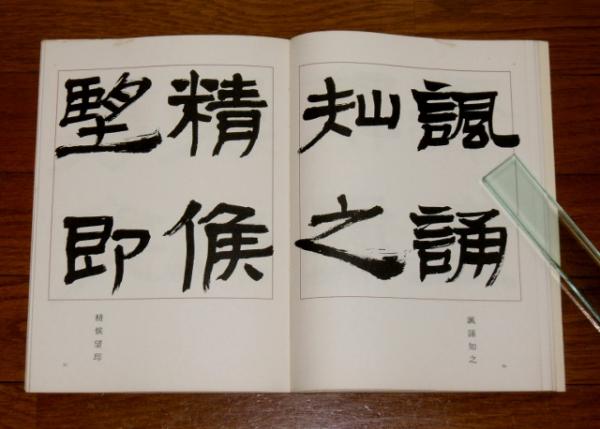 諷誦
知之
精候
望即
諷誦知之
精候望